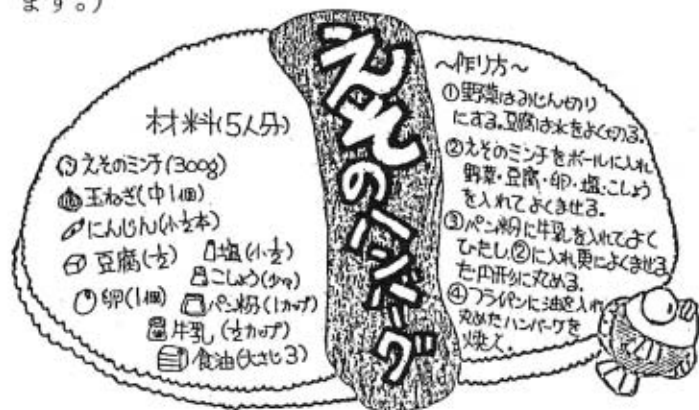 ます。)
材料(5人分)
えそのミンチ(300g)
玉ねぎ(中1個)
にんじん(小½本)
豆腐(½)
卵(1個)
塩(小½)
こしょう(少々)
パン粉(1カップ)
牛乳(½カップ)
食油(大さじ3)
えそのハンバーグ
～作り方～
①野菜はみじん切り
にする。豆腐は水をよくきる。
②えそのミンチをボールに入れ
野菜・豆腐・卵・塩・こしょう
を入れてよくまぜる。
③パン粉に牛乳を入れてよく
ひたし、②に入れ更によくまぜる
た円形に丸める。
④フライパンに油を入れ
丸めたハンバーグを
焼く。